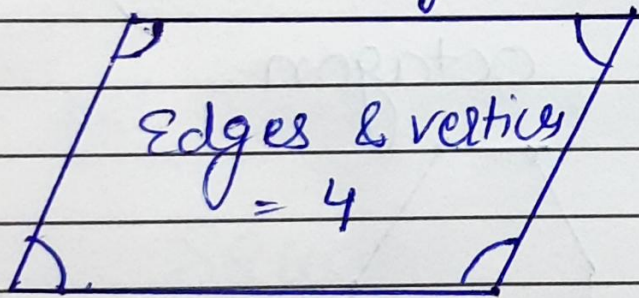 Edges & vertices
= 4